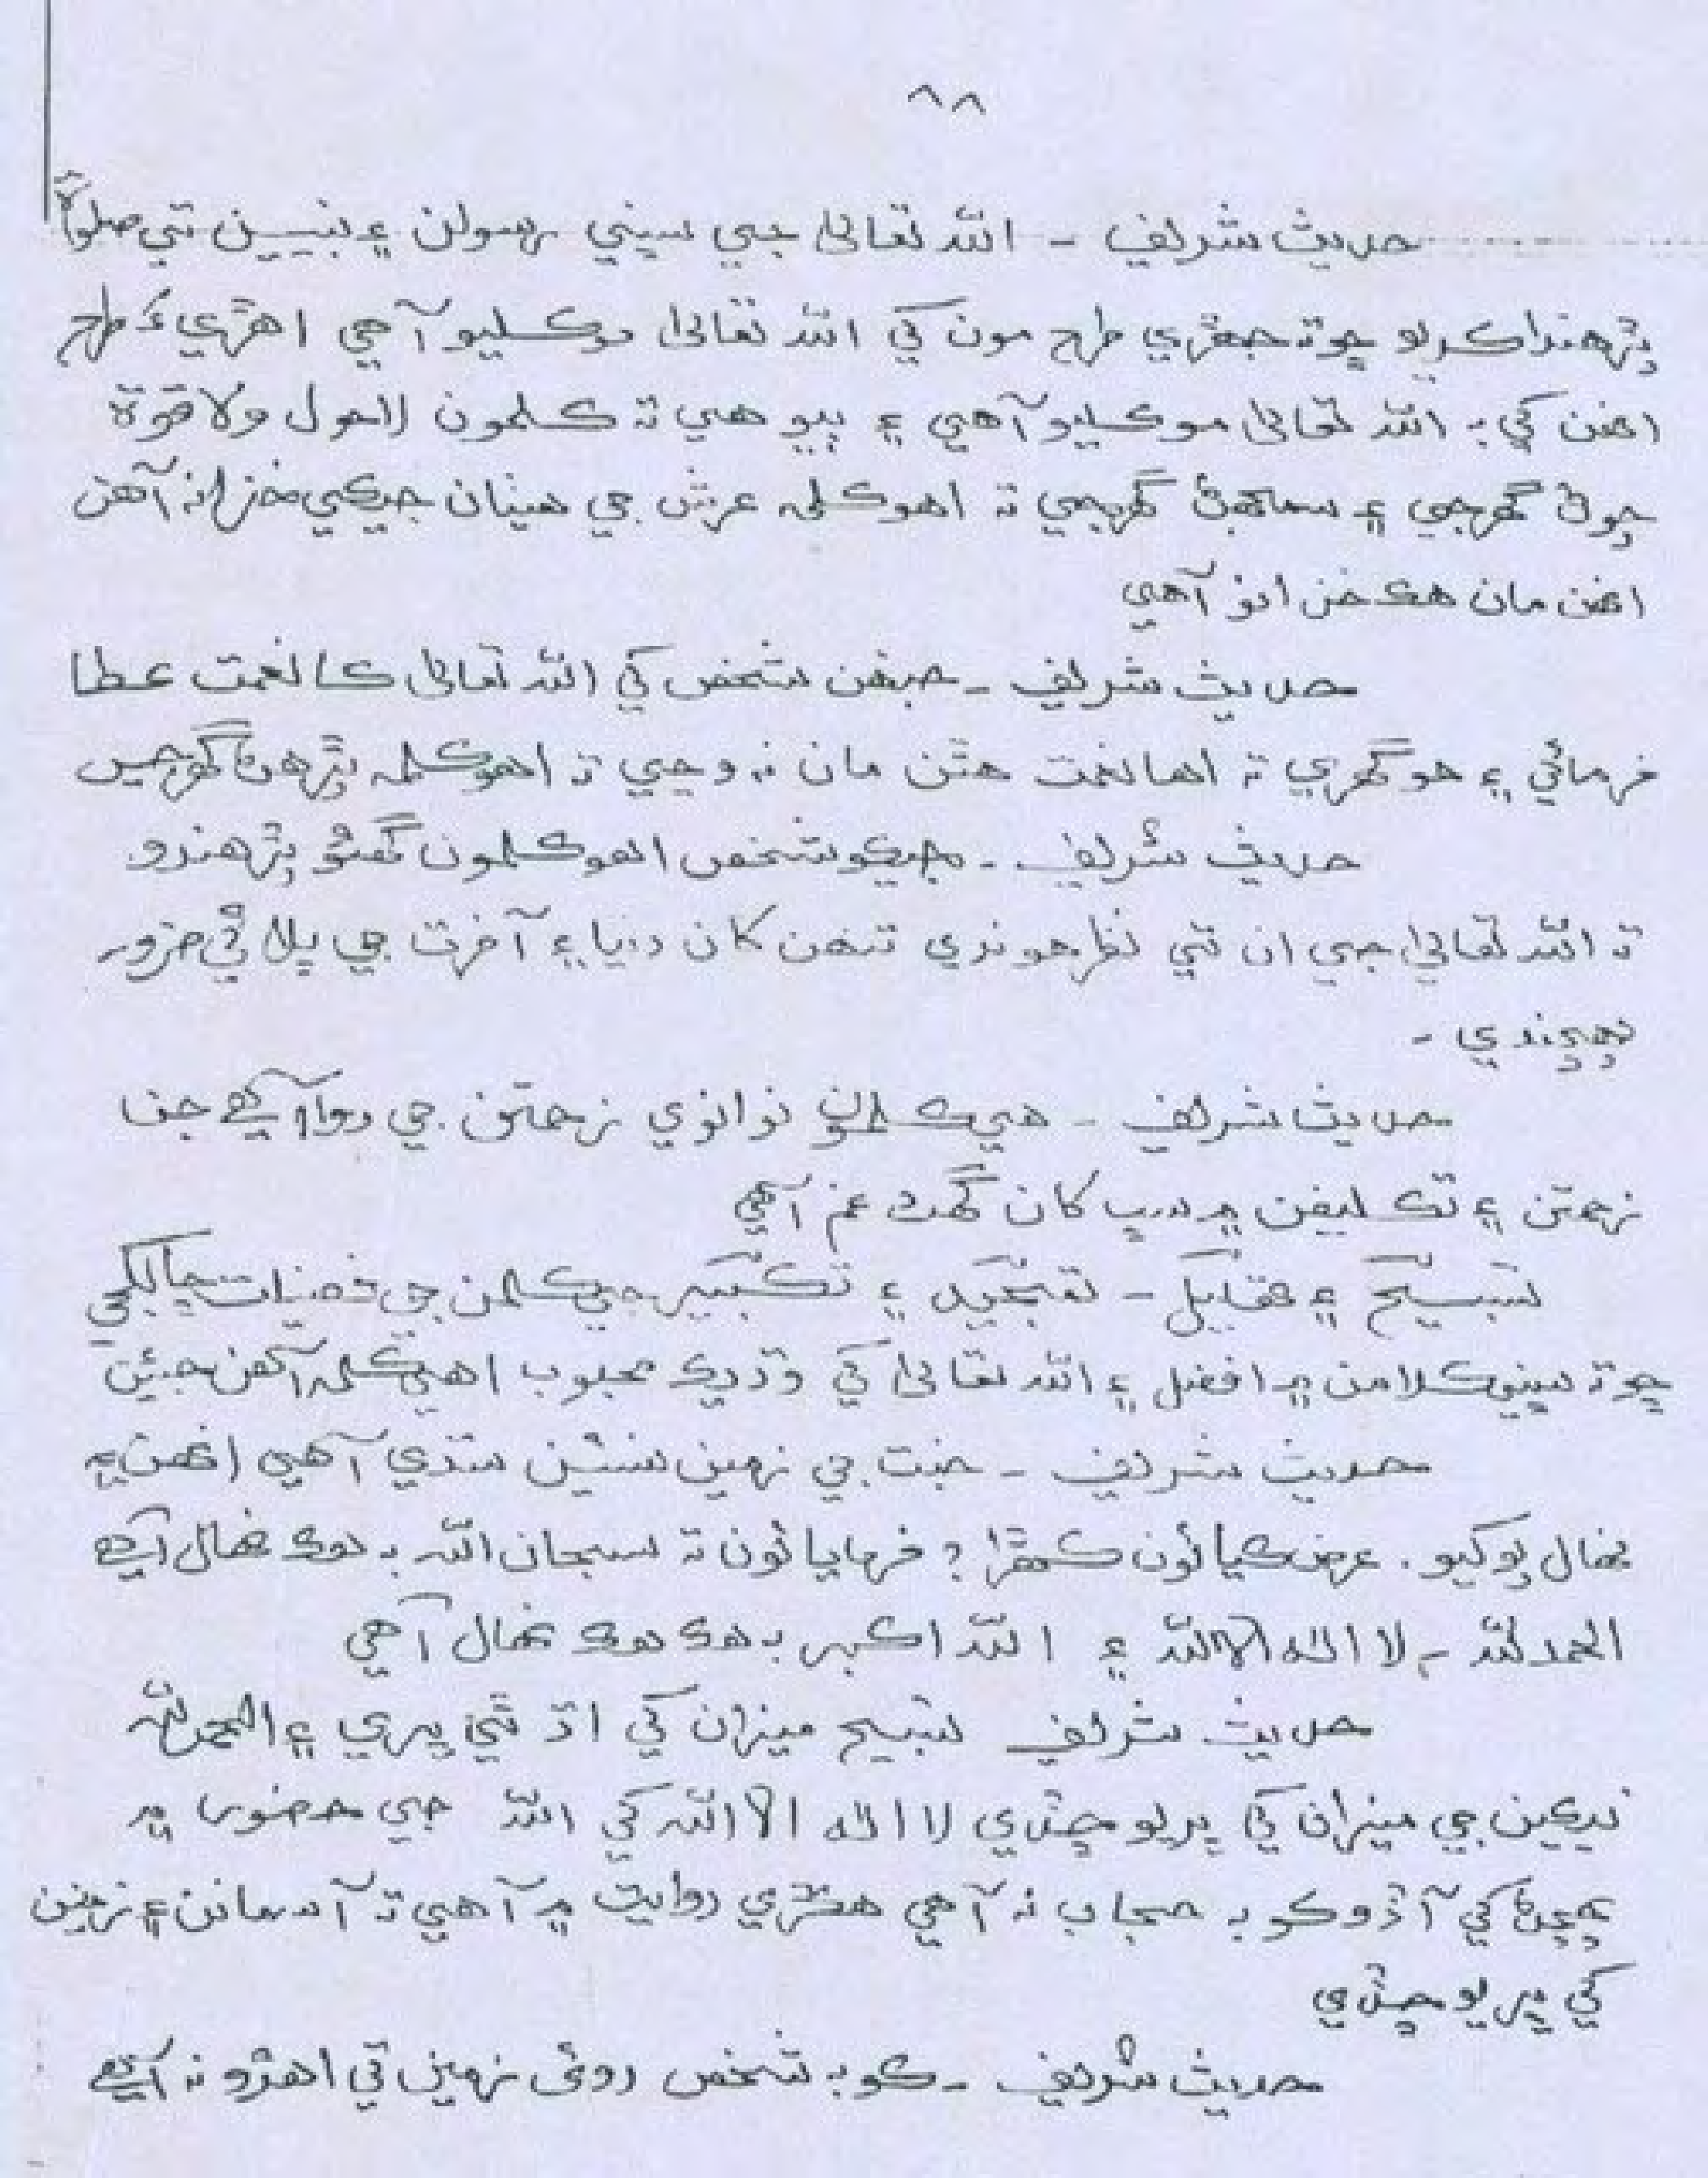 ۸۸
حديث شريف - الله تعاليٰ جي سڀني رسولن ۽ نبيين تي صلواة
پڙهندا ڪريو ڇو ته جهڙي طرح مون کي الله تعاليٰ موڪليو آهي اهڙيءَ طرح
انهن کي به الله تعاليٰ موڪليو آهي ۽ ٻيو هي ته ڪلمون لاحول ولا قوة
چوڻ گهرجي ۽ سمجهڻ گهرجي ته اهو ڪلمه عرش جي هيٺان جيڪي خزانه آهن
انهن مان هڪ خزانو آهي
حديث شريف - جنهن شخص کي الله تعاليٰ ڪا نعمت عطا
فرمائي ۽ هو گهري ته اها نعمت هٿن مان نه وڃي ته اهو ڪلمه پڙهڻ گهرجيس
حديث شريف - جيڪو شخص اهو ڪلمون گهڻو پڙهندو
ته الله تعاليٰ جي ان تي نظر هوندي تنهن کان دنيا ۽ آخرت جي ڀلائي ضرور
پهچندي -
حديث شريف - هي ڪلمون نوانوي زحمتن جي دوا آهي جن
زحمتن ۽ تڪليفن ۾ سڀ کان گهٽ غم آهي
تسبيح ۽ تهليل - تمجيد ۽ تڪبير جي ڪلمن جي فضيلت
ڇو ته سڀني ڪلامن ۾ افضل ۽ الله تعاليٰ کي وڌيڪ محبوب اهي ڪلمه آهن جيئن
حديث شريف - جنت جي زمين سنئين سڌي آهي انهن ۾
نهال پوکيو. عرض ڪيائون ڪهڙا؟ فرمايائون ته سبحان الله به هڪ نهال آهي
الحمدلله - لا اله الا الله ۽ الله اڪبر به هڪ هڪ نهال آهي
حديث شريف تسبيح ميزان کي اڌ تي ڀري ۽ الحمدلله
نيڪين جي ميزان کي ڀريو ڇڏي لا اله الا الله کي الله جي حضور ۾
پهچڻ کي آڏو ڪو به حجاب نه آهي هڪڙي روايت ۾ آهي ته آسمانن ۽ زمين
کي ڀريو ڇڏي
حديث شريف - ڪو به شخص روئي زمين تي اهڙو نه آهي